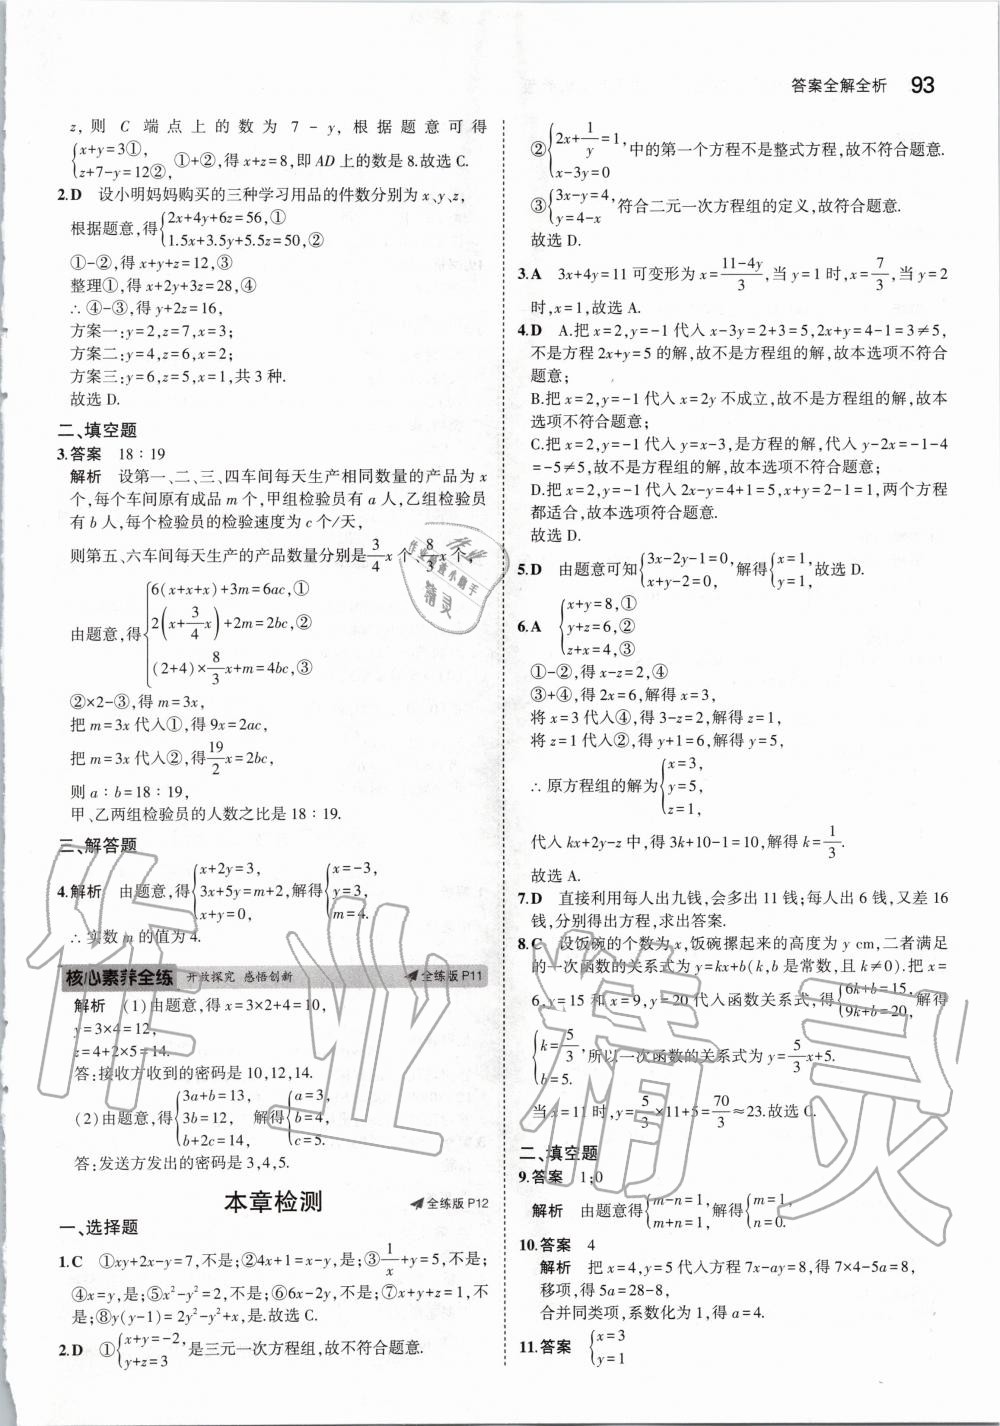 答案全解全析 93
z,则 C 端点上的数为 7-y,根据题意可得
{x+y=3①, z+7-y=12②, ①+②,得 x+z=8,即 AD 上的数是 8.故选 C.
2.D 设小明妈妈购买的三种学习用品的件数分别为 x、y、z,
根据题意,得{2x+4y+6z=56,① 1.5x+3.5y+5.5z=50,②
①-②,得 x+y+z=12,③
整理①,得 x+2y+3z=28,④
∴ ④-③,得 y+2z=16,
方案一:y=2,z=7,x=3;
方案二:y=4,z=6,x=2;
方案三:y=6,z=5,x=1,共 3 种.
故选 D.
二、填空题
3.答案 18∶19
解析 设第一、二、三、四车间每天生产相同数量的产品为 x
个,每个车间原有成品 m 个,甲组检验员有 a 人,乙组检验员
有 b 人,每个检验员的检验速度为 c 个/天,
则第五、六车间每天生产的产品数量分别是 3/4 x 个、8/3 x 个,
由题意,得{6(x+x+x)+3m=6ac,① 2(x+3/4 x)+2m=2bc,② (2+4)×8/3 x+m=4bc,③
②×2-③,得 m=3x,
把 m=3x 代入①,得 9x=2ac,
把 m=3x 代入②,得 19/2 x=2bc,
则 a∶b=18∶19,
甲、乙两组检验员的人数之比是 18∶19.
三、解答题
4.解析 由题意,得{x+2y=3, 3x+5y=m+2, x+y=0, 解得{x=-3, y=3, m=4.
∴ 实数 m 的值为 4.
核心素养全练 开放探究 感悟创新 全练版 P11
解析 (1)由题意,得 x=3×2+4=10,
y=3×4=12,
z=4+2×5=14.
答:接收方收到的密码是 10,12,14.
(2)由题意,得{3a+b=13, 3b=12, b+2c=14, 解得{a=3, b=4, c=5.
答:发送方发出的密码是 3,4,5.
本章检测 全练版 P12
一、选择题
1.C ①xy+2x-y=7,不是;②4x+1=x-y,是;③1/x+y=5,不是;
④x=y,是;⑤x²-y²=2,不是;⑥6x-2y,不是;⑦x+y+z=1,不
是;⑧y(y-1)=2y²-y²+x,是.故选 C.
2.D ①{x+y=-2, y+z=3 是三元一次方程组,故不符合题意.
②{2x+1/y=1, x-3y=0 中的第一个方程不是整式方程,故不符合题意.
③{3x-y=4, y=4-x 符合二元一次方程组的定义,故符合题意.
故选 D.
3.A 3x+4y=11 可变形为 x=(11-4y)/3,当 y=1 时,x=7/3,当 y=2
时,x=1,故选 A.
4.D A.把 x=2,y=-1 代入 x-3y=2+3=5,2x+y=4-1=3≠5,
不是方程 2x+y=5 的解,故不是方程组的解,故本选项不符合
题意;
B.把 x=2,y=-1 代入 x=2y 不成立,故不是方程组的解,故本
选项不符合题意;
C.把 x=2,y=-1 代入 y=x-3,是方程的解,代入 y-2x=-1-4
=-5≠5,故不是方程组的解,故本选项不符合题意;
D.把 x=2,y=-1 代入 2x-y=4+1=5,x+y=2-1=1,两个方程
都适合,故本选项符合题意.
故选 D.
5.D 由题意可知{3x-2y-1=0, x+y-2=0, 解得{x=1, y=1, 故选 D.
6.A {x+y=8,① y+z=6,② z+x=4,③
①-②,得 x-z=2,④
③+④,得 2x=6,解得 x=3,
将 x=3 代入④,得 3-z=2,解得 z=1,
将 z=1 代入②,得 y+1=6,解得 y=5,
∴ 原方程组的解为{x=3, y=5, z=1,
代入 kx+2y-z 中,得 3k+10-1=10,解得 k=1/3.
故选 A.
7.D 直接利用每人出九钱,会多出 11 钱;每人出 6 钱,又差 16
钱,分别得出方程,求出答案.
8.C 设饭碗的个数为 x,饭碗摞起来的高度为 y cm,二者满足
的一次函数的关系式为 y=kx+b(k,b 是常数,且 k≠0).把 x=
6,y=15 和 x=9,y=20 代入函数关系式,得{6k+b=15, 9k+b=20, 解得
{k=5/3, b=5. 所以一次函数的关系式为 y=5/3 x+5.
当 x=11 时,y=5/3×11+5=70/3≈23.故选 C.
二、填空题
9.答案 1;0
解析 由题意,得{m-n=1, m+n=1, 解得{m=1, n=0.
10.答案 4
解析 把 x=4,y=5 代入方程 7x-ay=8,得 7×4-5a=8,
移项,得 5a=28-8,
合并同类项,系数化为 1,得 a=4.
11.答案 {x=3 y=1
作业精灵